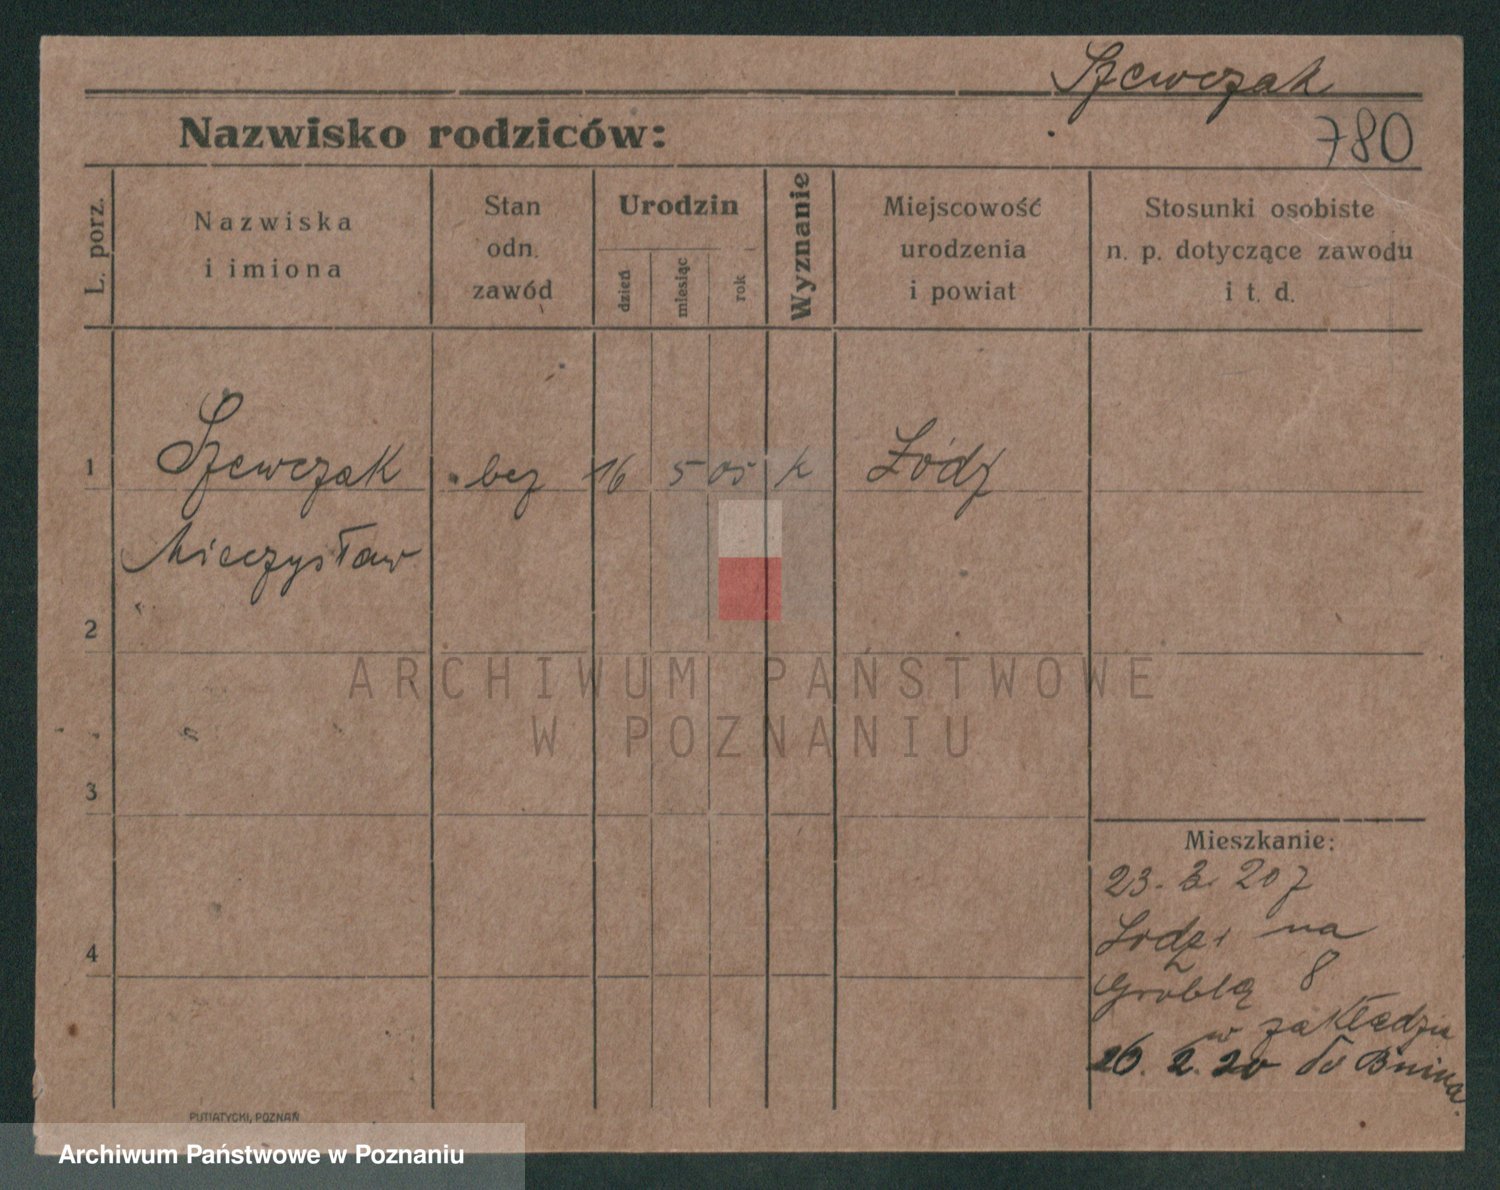 Szewczak
Nazwisko rodziców:
780
L. porz.
Nazwiska
i imiona
Stan
odn.
zawód
Urodzin
dzień
miesiąc
rok
Wyznanie
Miejscowość
urodzenia
i powiat
Stosunki osobiste
n. p. dotyczące zawodu
i t. d.
1
Szewczak
bez
16
5
05
k
Łódz
Mieczysław
2
ARCHIWUM PAŃSTWOWE
W POZNANIU
3
Mieszkanie:
23. 20 z
Łodzi na
4
Groblą 8
w zakładzie
26. 2. 20 do Bnina.
PUTIATYCKI, POZNAŃ
Archiwum Państwowe w Poznaniu